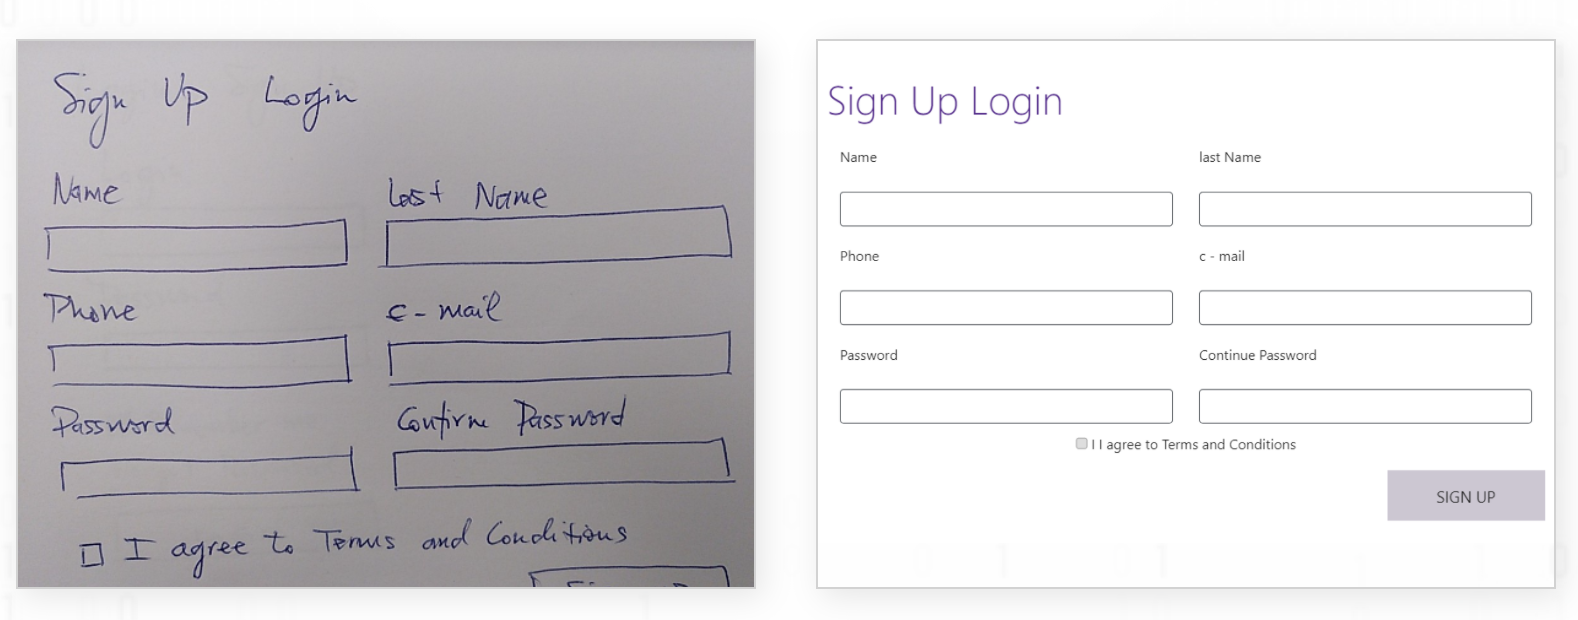 Sign Up Login
Name
Last Name
Phone
e-mail
Password
Confirm Password
I agree to Terms and Conditions
Sign Up Login
Name
last Name
Phone
c - mail
Password
Continue Password
I I agree to Terms and Conditions
SIGN UP